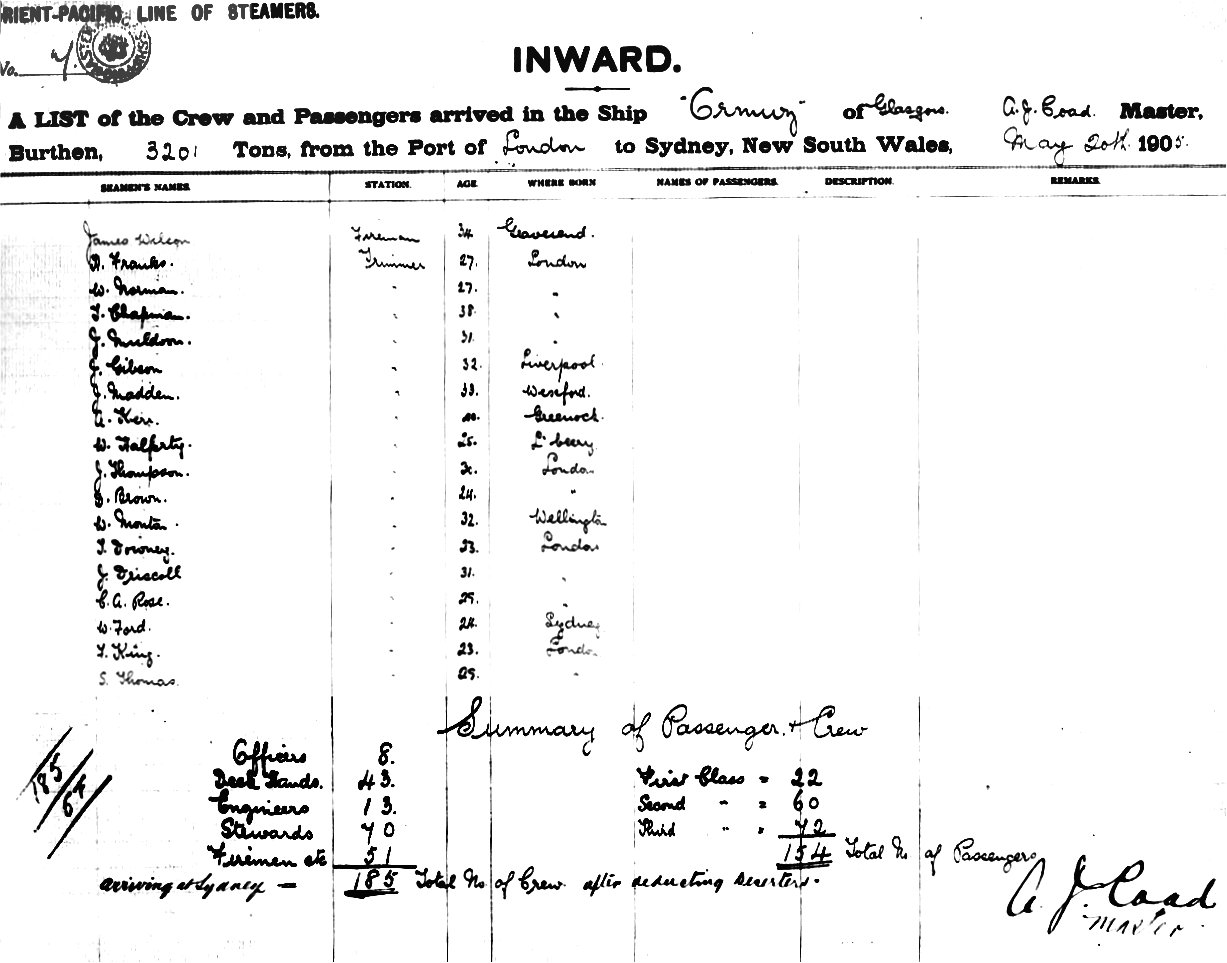 RIENT-PACIFIC LINE OF STEAMERS.
No. 7.
INWARD.
A LIST of the Crew and Passengers arrived in the Ship "Ormuz" of Glasgow. A.J. Coad. Master,
Burthen, 3201 Tons, from the Port of London to Sydney, New South Wales, May 20th 1905.
SEAMEN'S NAMES. STATION. AGE. WHERE BORN NAMES OF PASSENGERS. DESCRIPTION. REMARKS.
James Wilson Fireman 34. Gravesend.
Franks. Trimmer 27. London
W. Norman. " 27. "
T. Chapman. " 38. "
J. Muldoon. " 31. "
J. Gibson " 32. Liverpool.
J. Madden. " 33. Wexford.
A. Kerr. " Greenock.
W. Halferty. " 25. L'derry
J. Thompson. " London
Brown. " 24. "
W. Monton. " 32. Wellington
T. Downey. " 23. London
J. Driscoll " 31. "
C. A. Rose. " 25. "
W. Ford. " 24. Sydney
T. King. " 23. London
S. Thomas. 25. "
Summary of Passengers + Crew
185/64
Officers 8.
Deck Hands. 43.
Engineers 13.
Stewards 70
Firemen etc 51
arriving at Sydney — 185 Total No of Crew after deducting Deserters.
First Class = 22
Second " = 60
Third " = 72
154 Total No of Passengers
A. J. Coad
Master